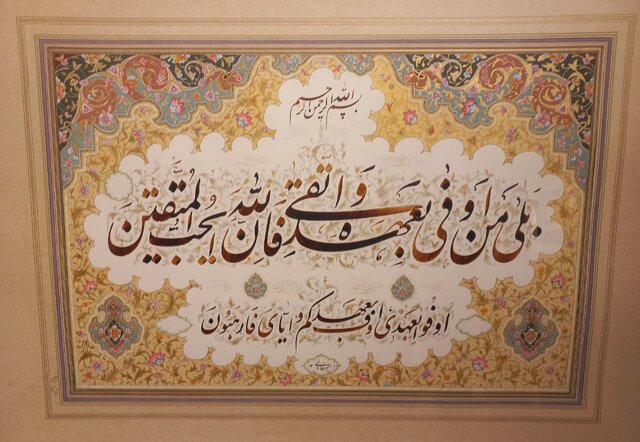 بسم الله الرحمن الرحیم
بلی من اوفی بعهده و اتقی فان الله یحب المتقین
اوفوا بعهدی اوف بعهدکم و ایای فارهبون